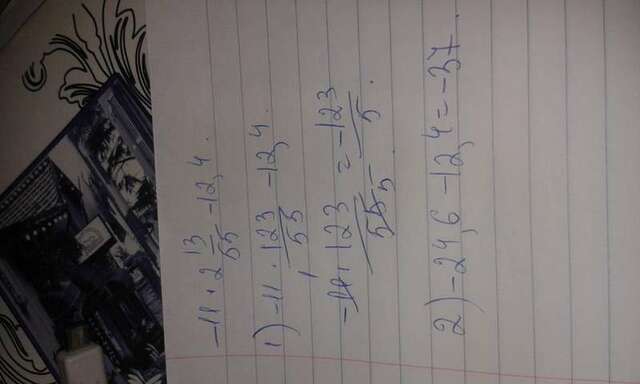 -11 · 2 13/55 - 12,4.
1) -11 · 123/55 - 12,4.
-11 · 123/55 5 = -123/5.
2) -24,6 - 12,4 = -37.